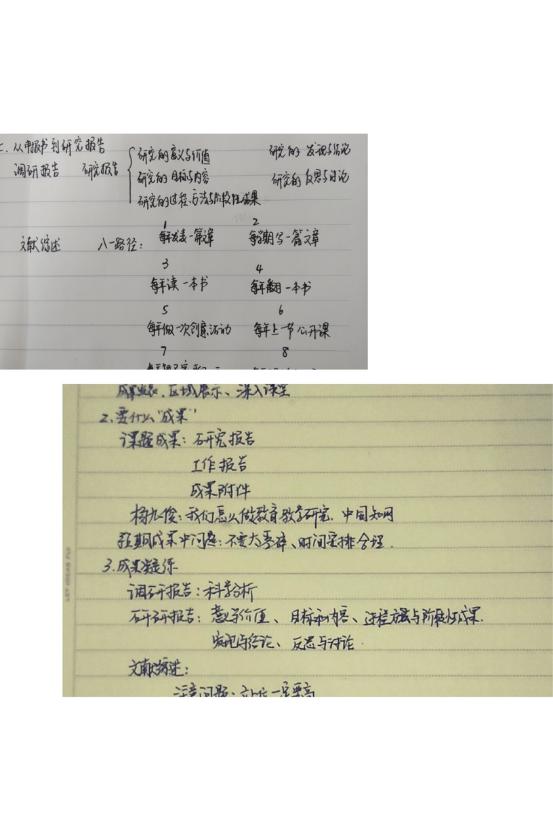 二、从申报书到研究报告
调研报告 研究报告 研究的意义与价值 研究的发现与结论
研究的目标与内容 研究的反思与讨论
研究的过程、方法与阶段性成果
1 2
文献综述 八一路径: 每年发表一篇文章 每学期写一篇文章
3 4
每年读一本书 每年翻一本书
5 6
每年做一次创意活动 每年上一节公开课
7 8
区域展示、深入课堂
2.要什么“成果”
课题成果:研究报告
工作报告
成果附件
杨九俊:我们怎么做教育教学研究. 中国知网
预期成果中问题:不要太零碎、时间安排合理.
3.成果
调研报告:科学分析
研究报告:意义价值、目标和内容、过程方法与阶段性成果.
发现与结论、反思与讨论.
文献综述:
注意问题:立足一定要高